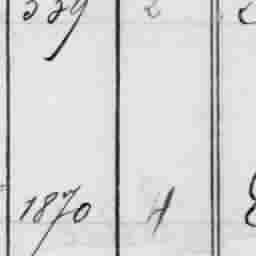 539 2
1870 4